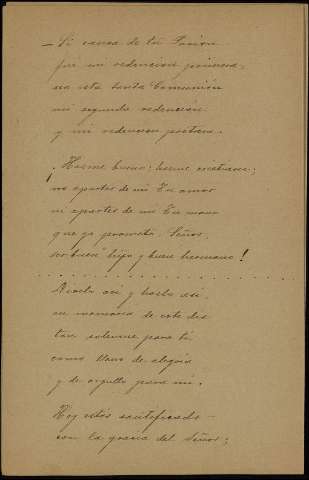 — Si causa de tu Pasión
fué mi redención primera,
sea esta Santa Comunión
mi segunda redención
y mi redención postrera.
¡Hazme bueno; hazme cristiano;
no apartes de mí Tu amor
ni apartes de mí Tu mano
que yo prometo, Señor,
ser buen hijo y buen hermano!
Rézale así y hazlo así,
en memoria de este día
tan solemne para tí
como lleno de alegría
y de orgullo para mí.
Hoy estás santificado
con la gracia del Señor;